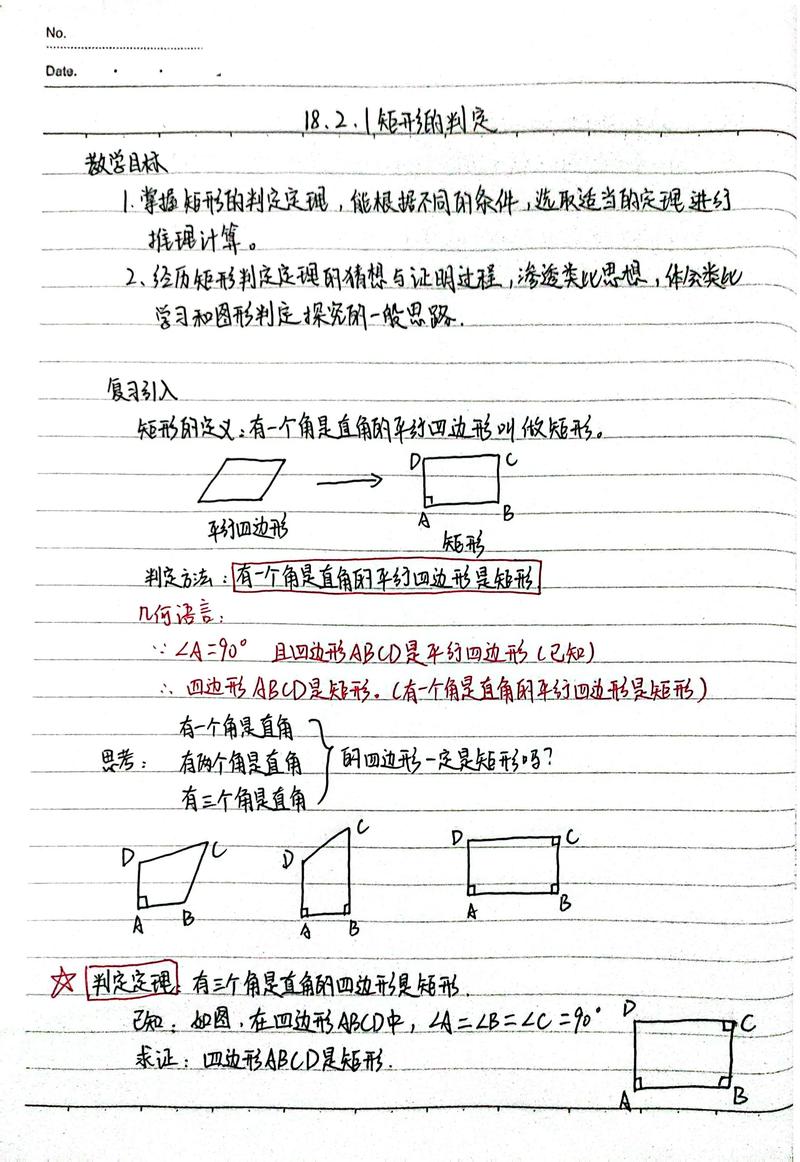 No.
Date.
18.2.1矩形的判定
教学目标
1.掌握矩形的判定定理,能根据不同的条件,选取适当的定理进行
推理计算。
2、经历矩形判定定理的猜想与证明过程,渗透类比思想,体会类比
学习和图形判定探究的一般思路.
复习引入
矩形的定义:有一个角是直角的平行四边形叫做矩形。
D C
A B
平行四边形
矩形
判定方法:有一个角是直角的平行四边形是矩形
几何语言:
∵∠A=90° 且四边形ABCD是平行四边形(已知)
∴四边形ABCD是矩形.(有一个角是直角的平行四边形是矩形)
有一个角是直角
思考: 有两个角是直角 的四边形一定是矩形吗?
有三个角是直角
D C D C D C
A B A B A B
☆ 判定定理:有三个角是直角的四边形是矩形.
已知:如图,在四边形ABCD中,∠A=∠B=∠C=90°
求证:四边形ABCD是矩形.
D C
A B